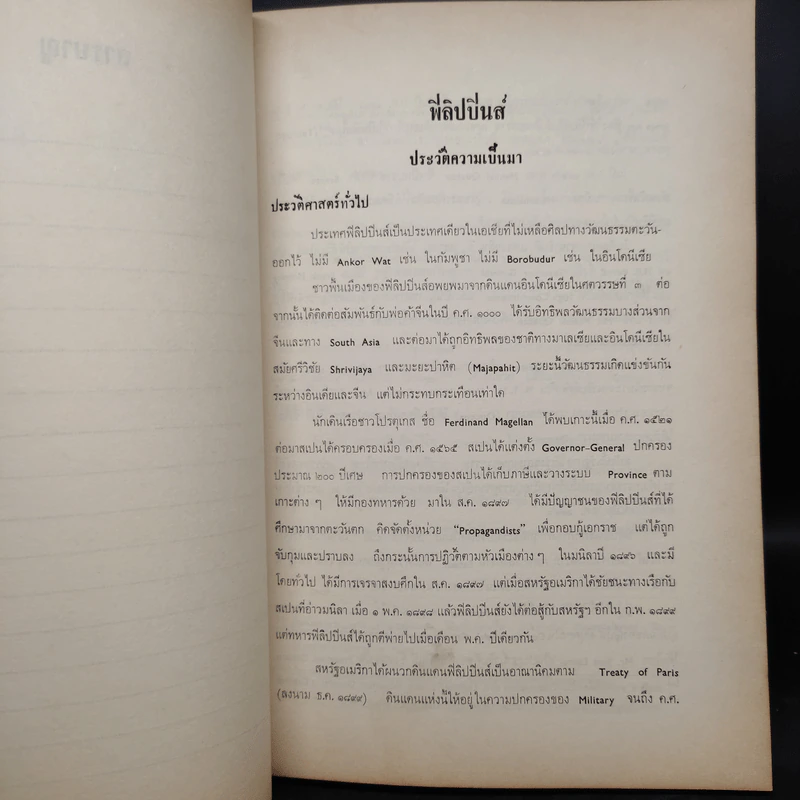 ฟิลิปปินส์
ประวัติความเป็นมา
ประวัติศาสตร์ทั่วไป
ประเทศฟิลิปปินส์เป็นประเทศเดียวในเอเชียที่ไม่เหลือศิลปทางวัฒนธรรมตะวัน-
ออกไว้ ไม่มี Ankor Wat เช่น ในกัมพูชา ไม่มี Borobudur เช่น ในอินโดนีเซีย
ชาวพื้นเมืองของฟิลิปปินส์อพยพมาจากดินแดนอินโดนีเซียในศตวรรษที่ ๓ ต่อ
จากนั้นได้ติดต่อสัมพันธ์กับพ่อค้าจีนในปี ค.ศ. ๑๐๐๐ ได้รับอิทธิพลวัฒนธรรมบางส่วนจาก
จีนและทาง South Asia และต่อมาได้ถูกอิทธิพลของชาติทางมาเลเซียและอินโดนีเซียใน
สมัยศรีวิชัย Shrivijaya และมะยะปาหิต (Majapahit) ระยะนี้วัฒนธรรมเกิดแข่งขันกัน
ระหว่างอินเดียและจีน แต่ไม่กระทบกระเทือนเท่าใด
นักเดินเรือชาวโปรตุเกส ชื่อ Ferdinand Magellan ได้พบเกาะนี้เมื่อ ค.ศ. ๑๕๒๑
ต่อมาสเปนได้ครอบครองเมื่อ ค.ศ. ๑๕๖๕ สเปนได้แต่งตั้ง Governor-General ปกครอง
ประมาณ ๒๐๐ ปีเศษ การปกครองของสเปนได้เก็บภาษีและวางระบบ Province ตาม
เกาะต่าง ๆ ให้มีกองทหารด้วย มาใน ส.ค. ๑๘๙๗ ได้มีปัญญาชนของฟิลิปปินส์ที่ได้
ศึกษามาจากตะวันตก คิดจัดตั้งหน่วย “Propagandists” เพื่อกอบกู้เอกราช แต่ได้ถูก
จับกุมและปราบลง ถึงกระนั้นการปฏิวัติตามหัวเมืองต่าง ๆ ในมนิลาปี ๑๘๙๖ และมี
โดยทั่วไป ได้มีการเจรจาสงบศึกใน ส.ค. ๑๘๙๗ แต่เมื่อสหรัฐอเมริกาได้ชัยชนะทางเรือกับ
สเปนที่อ่าวมนิลา เมื่อ ๑ พ.ค. ๑๘๙๘ แล้วฟิลิปปินส์ยังได้ต่อสู้กับสหรัฐฯ อีกใน ก.พ. ๑๘๙๙
แต่ทหารฟิลิปปินส์ได้ถูกตีพ่ายไปเมื่อเดือน พ.ค. ปีเดียวกัน
สหรัฐอเมริกาได้ผนวกดินแดนฟิลิปปินส์เป็นอาณานิคมตาม Treaty of Paris
(ลงนาม ธ.ค. ๑๘๙๙) ดินแดนแห่งนี้ให้อยู่ในความปกครองของ Military จนถึง ค.ศ.